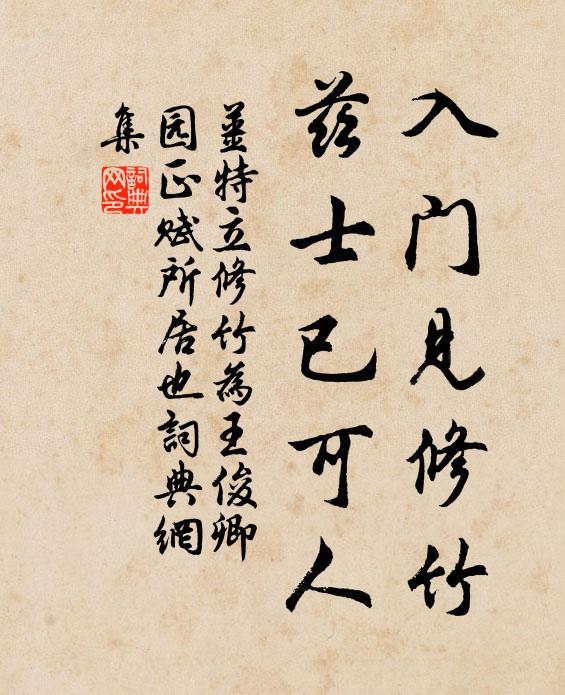 入门见修竹
兹士已可人
姜特立修竹為王俊卿
园正赋所居也詞典網
集
詞典
网印